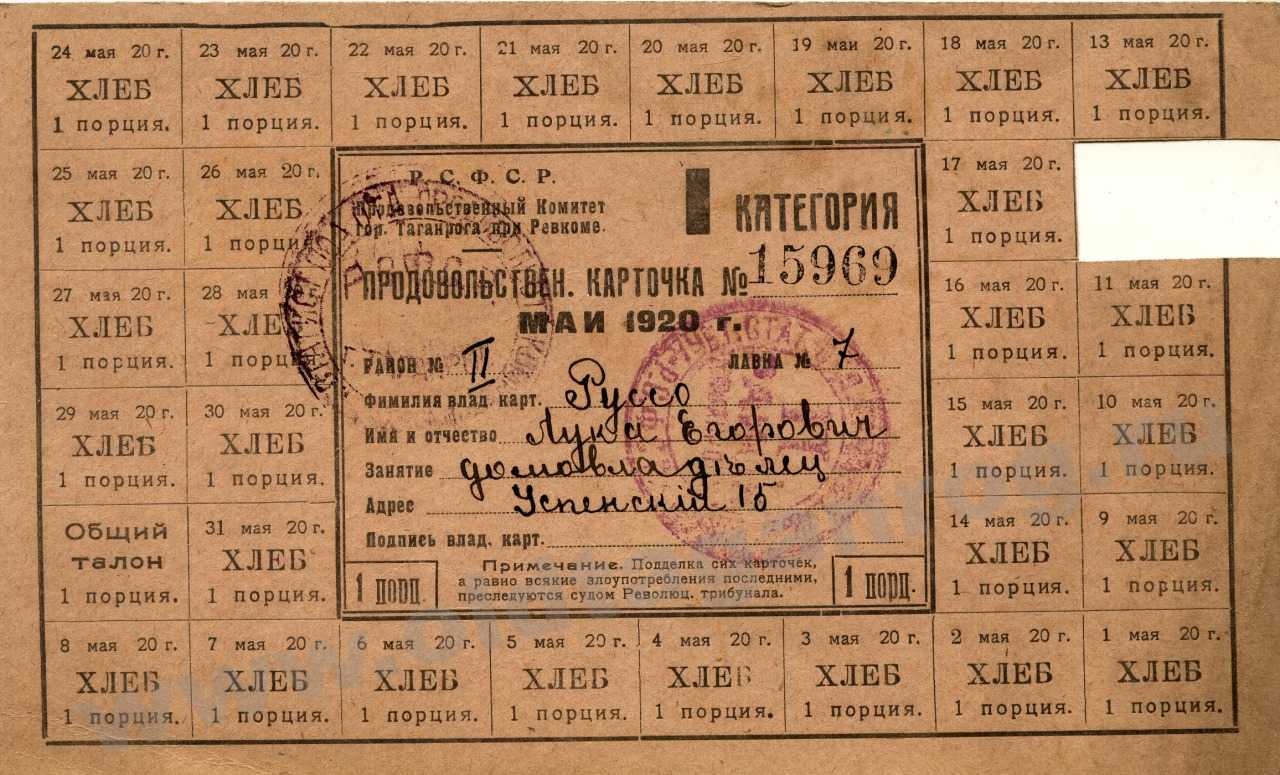 24 мая 20 г. 23 мая 20 г. 22 мая 20 г. 21 мая 20 г. 20 мая 20 г. 19 маи 20 г. 18 мая 20 г. 13 мая 20 г.
ХЛЕБ ХЛЕБ ХЛЕБ ХЛЕБ ХЛЕБ ХЛЕБ ХЛЕБ ХЛЕБ
1 порция. 1 порция. 1 порция. 1 порция. 1 порция. 1 порция. 1 порция. 1 порция.
25 мая 20 г. 26 мая 20 г. 17 мая 20 г.
ХЛЕБ ХЛЕБ ХЛЕБ
1 порция. 1 порция. 1 порция.
27 мая 20 г. 28 мая 16 мая 20 г. 11 мая 20 г.
ХЛЕБ ХЛЕБ ХЛЕБ ХЛЕБ
1 порция. 1 порция. 1 порция. 1 порция.
29 мая 20 г. 30 мая 20 г. 15 мая 20 г. 10 мая 20 г.
ХЛЕБ ХЛЕБ ХЛЕБ ХЛЕБ
1 порция. 1 порция. 1 порция. 1 порция.
Общий талон 31 мая 20 г. 14 мая 20 г. 9 мая 20 г.
ХЛЕБ ХЛЕБ ХЛЕБ
1 порция. 1 порция. 1 порция. 1 порция.
Р. С. Ф. С. Р.
Продовольственный Комитет
гор. Таганрога при Ревкоме.
I КАТЕГОРИЯ
ПРОДОВОЛЬСТВЕН. КАРТОЧКА № 15969
МАИ 1920 г.
РАЙОН № II ЛАВКА № 7
Фамилия влад. карт. Руссо
Имя и отчество Лука Егорович
Занятие домовладѣлец
Адрес Успенскій 15
Подпись влад. карт.
Примечание. Подделка сих карточек,
а равно всякие злоупотребления последними,
преследуются судом Революц. трибунала.
1 порц. 1 порц.
8 мая 20 г. 7 мая 20 г. 6 мая 20 г. 5 мая 20 г. 4 мая 20 г. 3 мая 20 г. 2 мая 20 г. 1 мая 20 г.
ХЛЕБ ХЛЕБ ХЛЕБ ХЛЕБ ХЛЕБ ХЛЕБ ХЛЕБ ХЛЕБ
1 порция. 1 порция. 1 порция. 1 порция. 1 порция. 1 порция. 1 порция. 1 порция.